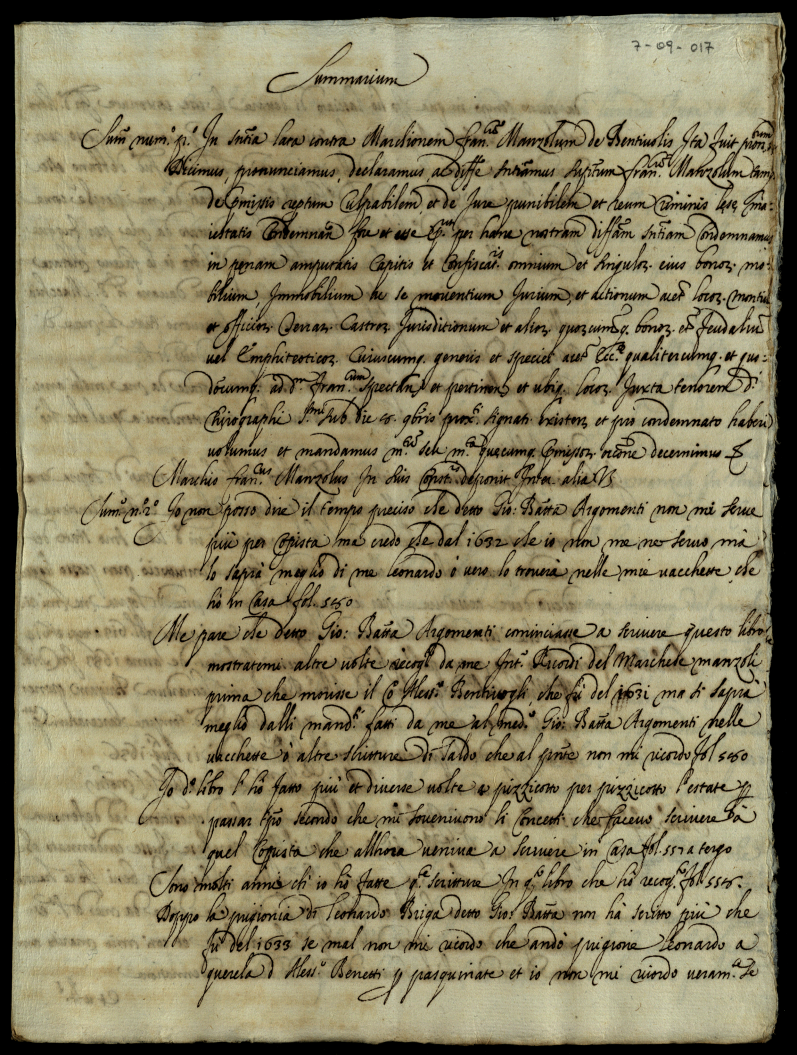 7-09-017
Summarium
Sum. num.º p.º In sn̄tia lata contra Marchionem Fran.cum Manzolum de Bentivolis Ita fuit
Dicimus, pronunciamus, declaramus ac diffe Fran.cum Manzolum
de Comissis reptum Culpabilem, et de Jure punibilem et reum Criminis lese Ma-
iestatis Condemnan fore et esse per hanc nostram diffām sn̄tiam Condemnamus
in penam amputatis Capitis et Confiscat.is omnium et singuloꝝ eius bonoꝝ mo-
bilium, Immobilium ac se moventium Jurium, et actionum locoꝝ montiu
et officioꝝ Terraꝝ Castroꝝ Jurisditionum et alioꝝ quoꝝcumq. bonoꝝ et feudaliu
vel Emphiteoticoꝝ Cuiuscumq. generis et speciei qualitercumq. et quo-
documq. ad d. Fran.cum spectan, et pertinen, et ubiq. locoꝝ Juxta tenorem d.
Chirographi S.mi sub die prox. signati et pro condemnato haberi
volumus et mandamus decernimus
Marchio Fran.cus Manzolus In suis Const.is deponit Inter alia V.
Sum.º n.º 2.º Io non posso dire il tempo preciso che detto Gio: Batta Argomenti non mi serve
più per Copista ma credo che dal 1632 che io non me ne servo, mà
lo saprà meglio di me Leonardo ò vero lo troverà nelle mie vacchette, che
hò in Casa fol. 550
Me pare che detto Gio: Batta Argomenti cominciasse a scrivere questo libro
mostratomi altre volte recog.to da me Int.º Ricordi del Marchese Manzoli
prima che morisse il Co: Aless.º Bentivogli, che fù del 1631 ma si saprà
meglio dalli mand.ti fatti da me al med.º Gio: Batta Argomenti nelle
vacchette ò altre scritture di saldo che al pn̄te non mi ricordo fol 550
Io d.º libro l'hò fatto più et diverse volte a pizzicotto per pizzicotto l'estate p
passar tpō secondo che mi sovenivono li Concetti che facevo scrivere à
quel Copista che all'hora veniva a scrivere in Casa fol. 551 a tergo
Sono molti anni ch'io hò fatte q.te scritture In q.to libro che hò recog.to fol 555.
Doppo la prigionia di Leonardo Briga detto Gio: Batta non hà scritto più che
fù del 1633 se mal non mi ricordo che andò prigione Leonardo a
querela d Aless.º Benetti p pasquinate et io non mi ricordo veram.te se